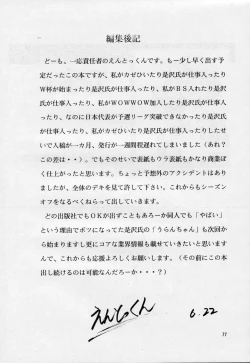 編集後記
どーも、一応責任者のえんとっくんです。もー少し早く出す予
定だったこの本ですが、私がカゼひいたり是沢氏が仕事入ったり
W杯が始まったり是沢氏が仕事入ったり、私がBS入れたり是沢
氏が仕事入ったり、私がWOWOW加入したり是沢氏が仕事入
ったり、なのに日本代表が予選リーグ突破できなかったりしたせ
いで入稿が一カ月、発行が一週間程遅れてしまいました(あれ?
この差は・・)。でもそのせいで表紙もウラ表紙もかなり商業ぽ
く仕上がったと思います。ちょっと予想外のアクシデントはあり
ましたが、全体のデキを見て許して下さい。これからもシーズン
オフをなるべくねらって出していきます。
どの出版社でもOKが出ずこともあろーか同人でも「やばい」
という理由でボツになってた是沢氏の「うらんちゃん」も次回か
ら始まりますし更にコアな業界情報も載せていきたいと思います
んで、これからも応援よろしくお願いします。(その前にこの本
出し続けるのは可能なんだろーか・・・?)
えんとっくん 6.22
77